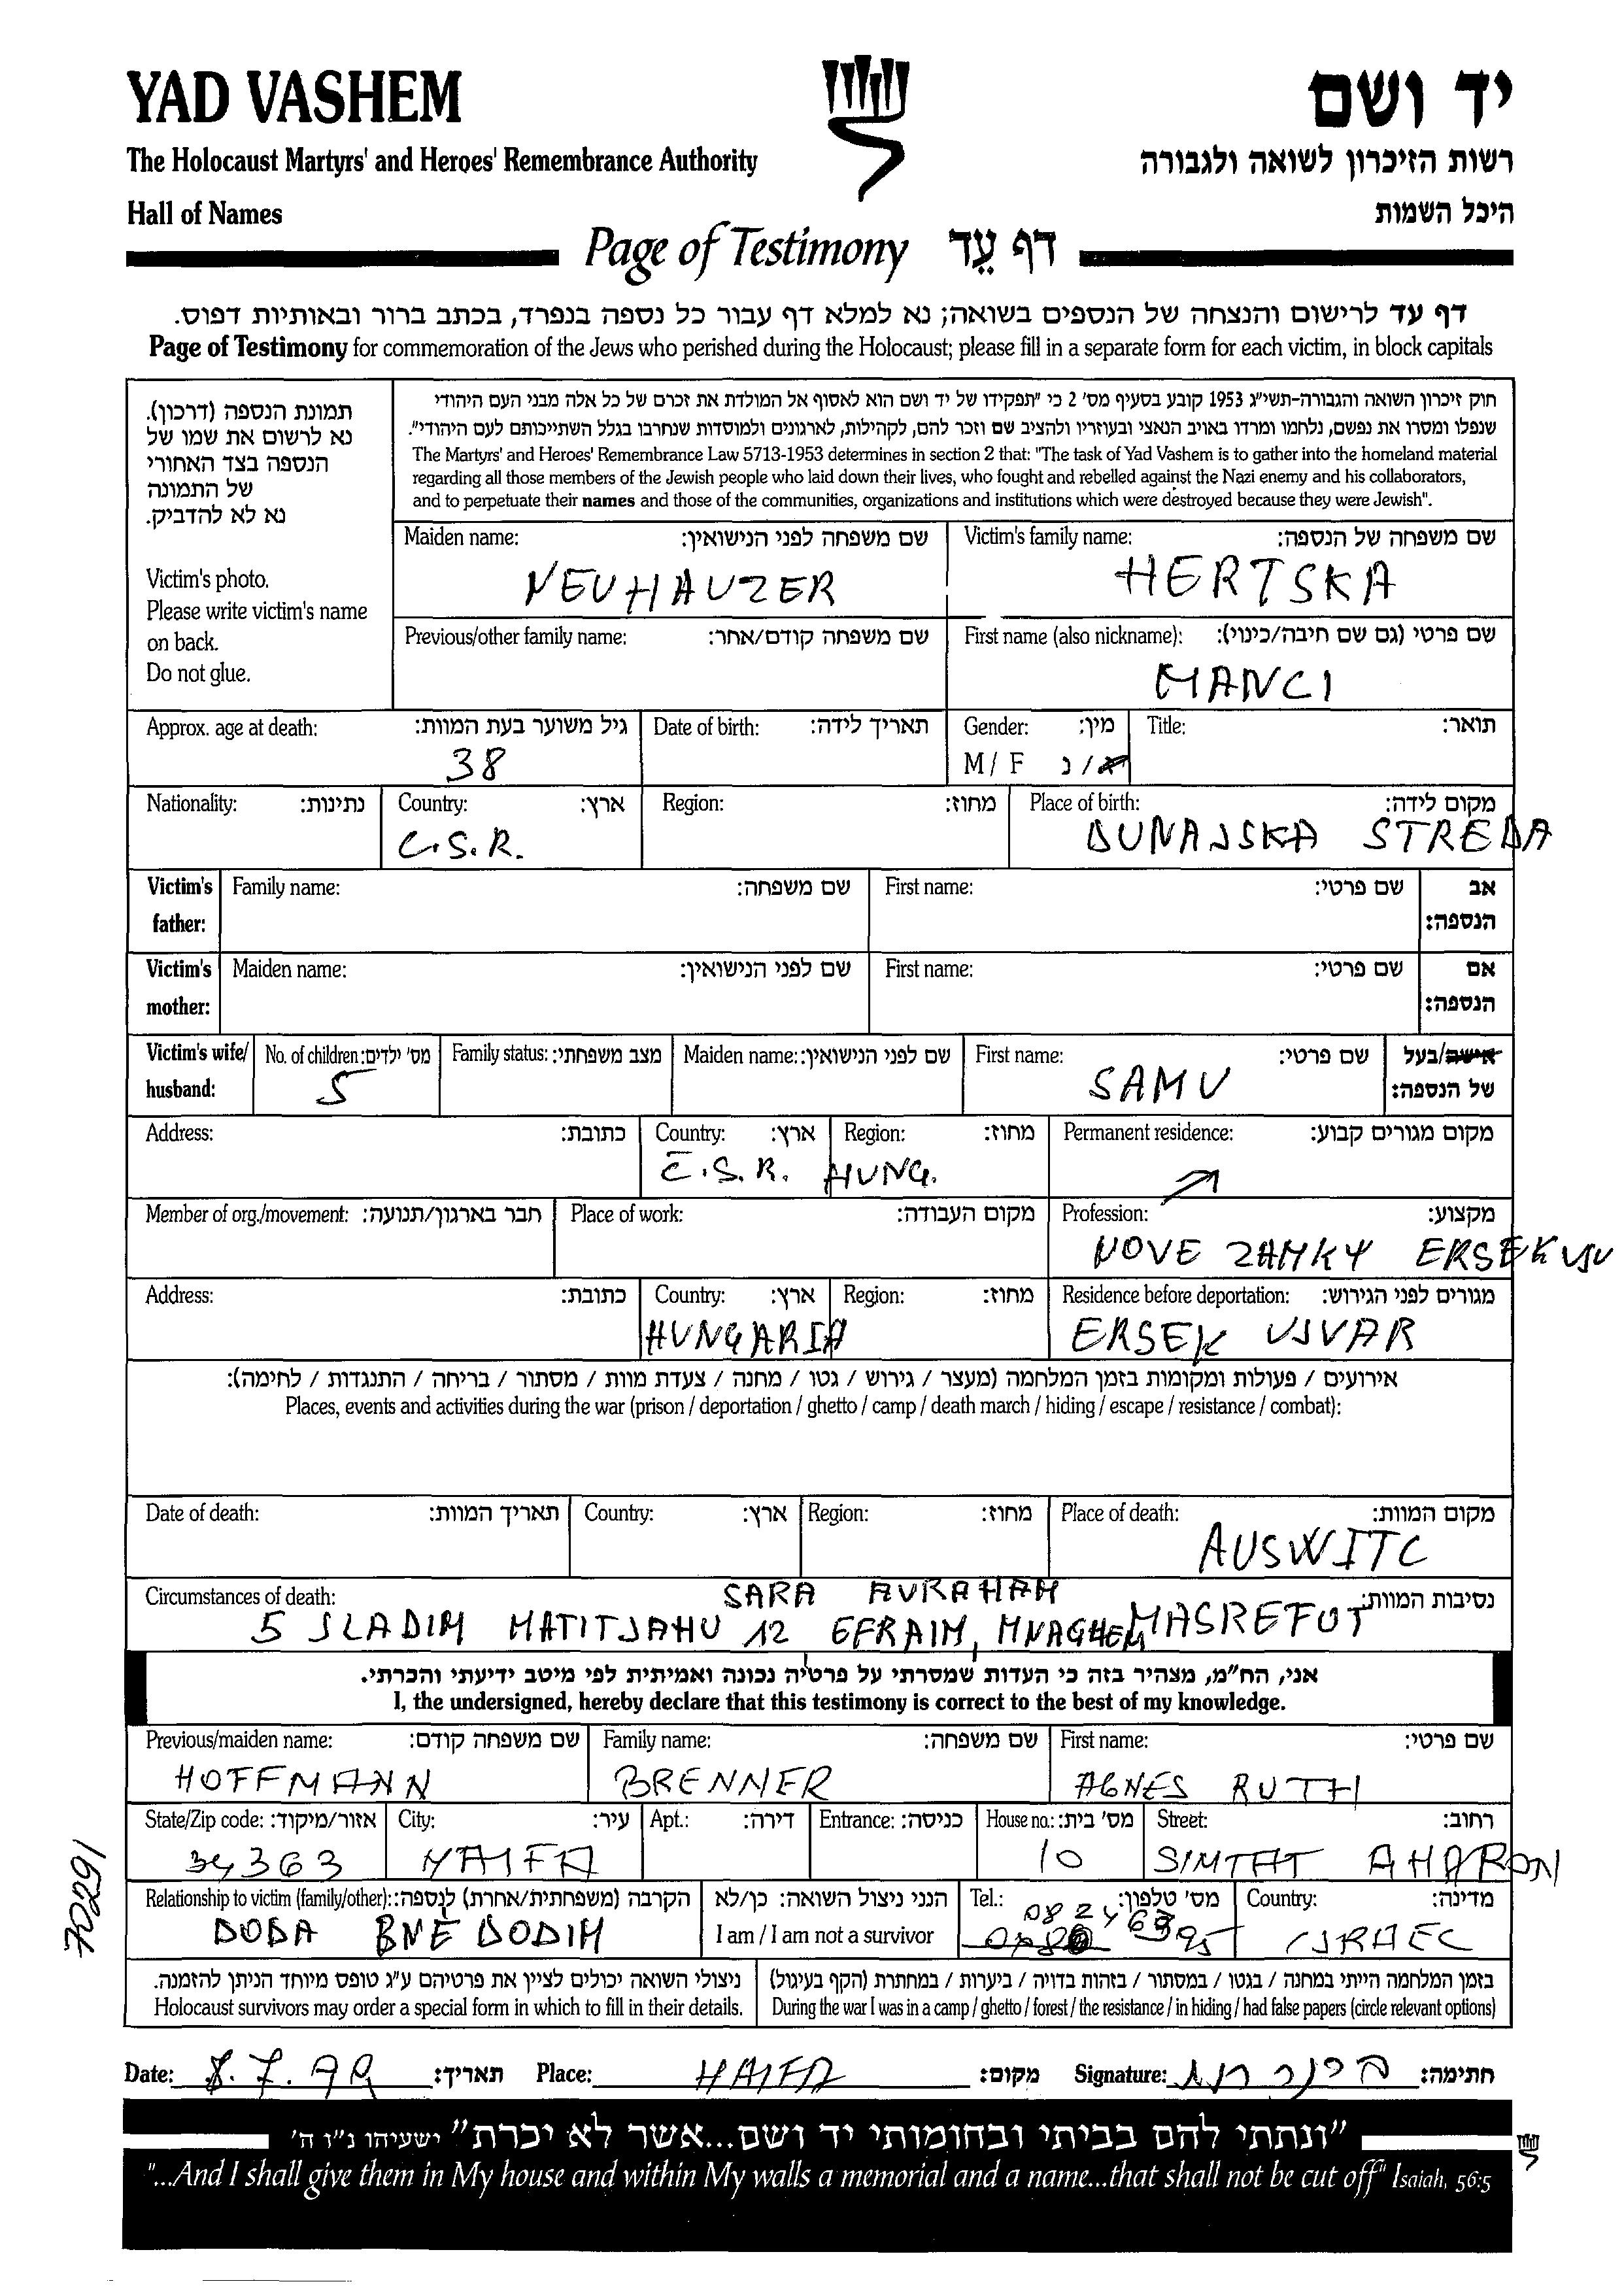 YAD VASHEM
יד ושם
The Holocaust Martyrs' and Heroes' Remembrance Authority
רשות הזיכרון לשואה ולגבורה
Hall of Names
היכל השמות
Page of Testimony דף עֵד
דף עד לרישום והנצחה של הנספים בשואה; נא למלא דף עבור כל נספה בנפרד, בכתב ברור ובאותיות דפוס.
Page of Testimony for commemoration of the Jews who perished during the Holocaust; please fill in a separate form for each victim, in block capitals
תמונת הנספה (דרכון).
נא לרשום את שמו של
הנספה בצד האחורי
של התמונה
נא לא להדביק.
Victim's photo.
Please write victim's name
on back.
Do not glue.
חוק זיכרון השואה והגבורה-תשי"ג 1953 קובע בסעיף מס' 2 כי "תפקידו של יד ושם הוא לאסוף אל המולדת את זכרם של כל אלה מבני העם היהודי
שנפלו ומסרו את נפשם, נלחמו ומרדו באויב הנאצי ובעוזריו ולהציב שם וזכר להם, לקהילות, לארגונים ולמוסדות שנחרבו בגלל השתייכותם לעם היהודי".
The Martyrs' and Heroes' Remembrance Law 5713-1953 determines in section 2 that: "The task of Yad Vashem is to gather into the homeland material
regarding all those members of the Jewish people who laid down their lives, who fought and rebelled against the Nazi enemy and his collaborators,
and to perpetuate their names and those of the communities, organizations and institutions which were destroyed because they were Jewish".
Maiden name: שם משפחה לפני הנישואין: Victim's family name: שם משפחה של הנספה:
NEUHAUZER HERTSKA
Previous/other family name: שם משפחה קודם/אחר: First name (also nickname): שם פרטי (גם שם חיבה/כינוי):
MANCI
Approx. age at death: גיל משוער בעת המוות: Date of birth: תאריך לידה: Gender: מין: Title: תואר:
38 M / F ז/נ
Nationality: נתינות: Country: ארץ: Region: מחוז: Place of birth: מקום לידה:
C.S.R. DUNAJSKA STREDA
Victim's father: Family name: שם משפחה: First name: שם פרטי: אב הנספה:
Victim's mother: Maiden name: שם לפני הנישואין: First name: שם פרטי: אם הנספה:
Victim's wife/ husband: No. of children: מס' ילדים: Family status: מצב משפחתי: Maiden name: שם לפני הנישואין: First name: שם פרטי: אישה/בעל של הנספה:
5 SAMU
Address: כתובת: Country: ארץ: Region: מחוז: Permanent residence: מקום מגורים קבוע:
C.S.R. HUNG.
Member of org./movement: חבר בארגון/תנועה: Place of work: מקום העבודה: Profession: מקצוע:
NOVE ZAMKY ERSEKUJV
Address: כתובת: Country: ארץ: Region: מחוז: Residence before deportation: מגורים לפני הגירוש:
HUNGARIA ERSEK UJVAR
אירועים / פעולות ומקומות בזמן המלחמה (מעצר / גירוש / גטו / מחנה / צעדת מוות / מסתור / בריחה / התנגדות / לחימה):
Places, events and activities during the war (prison / deportation / ghetto / camp / death march / hiding / escape / resistance / combat):
Date of death: תאריך המוות: Country: ארץ: Region: מחוז: Place of death: מקום המוות:
AUSWITC
Circumstances of death: SARA AVRAHAM נסיבות המוות:
5 JLADIM MATITJAHU 12 EFRAIM, MNAGHEM MASREFOT
אני, הח"מ, מצהיר בזה כי העדות שמסרתי על פרטיה נכונה ואמיתית לפי מיטב ידיעתי והכרתי.
I, the undersigned, hereby declare that this testimony is correct to the best of my knowledge.
Previous/maiden name: שם משפחה קודם: Family name: שם משפחה: First name: שם פרטי:
HOFFMANN BRENNER AGNES RUTH
State/Zip code: אזור/מיקוד: City: עיר: Apt.: דירה: Entrance: כניסה: House no.: מס' בית: Street: רחוב:
34363 HAIFA 10 SIMTAT AHARON
Relationship to victim (family/other): הקרבה (משפחתית/אחרת) לנספה: הנני ניצול השואה: כן/לא Tel.: מס' טלפון: Country: מדינה:
DODA BNE DODIM I am / I am not a survivor ISRAEL
ניצולי השואה יכולים לציין את פרטיהם ע"ג טופס מיוחד הניתן להזמנה. בזמן המלחמה הייתי במחנה / בגטו / במסתור / בזהות בדויה / ביערות / במחתרת (הקף בעיגול)
Holocaust survivors may order a special form in which to fill in their details. During the war I was in a camp / ghetto / forest / the resistance / in hiding / had false papers (circle relevant options)
Date: 8.7.99 תאריך: Place: HAIFA מקום: Signature: ברינר רות חתימה:
"ונתתי להם בביתי ובחומותי יד ושם...אשר לא יכרת" ישעיהו נ"ו ה'
"...And I shall give them in My house and within My walls a memorial and a name...that shall not be cut off" Isaiah, 56:5
70291